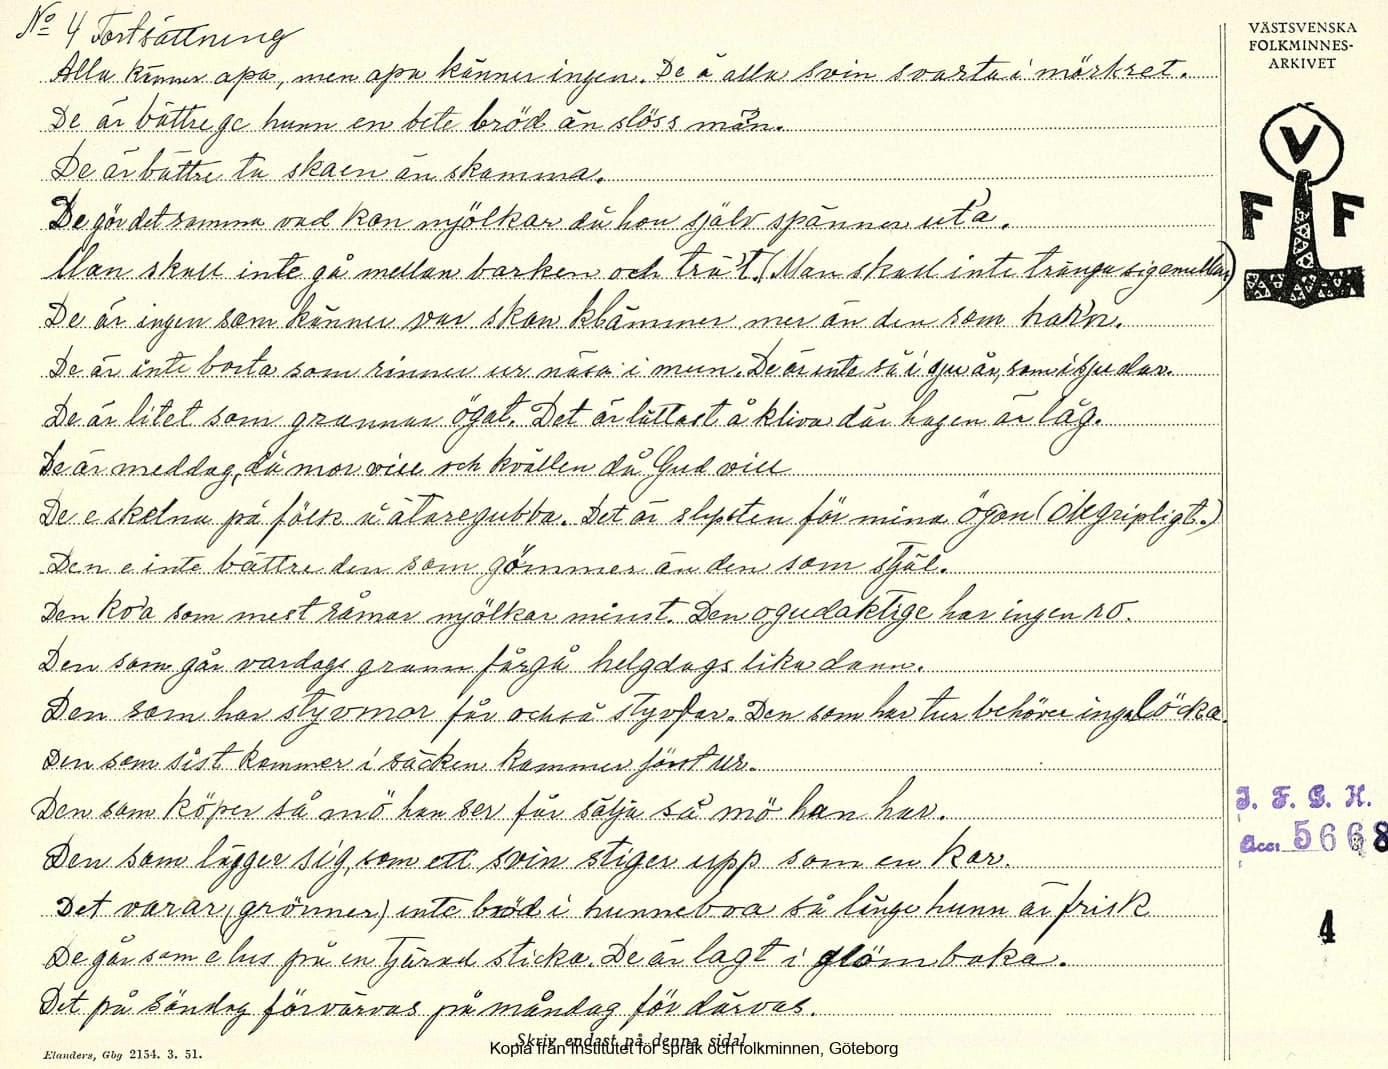 No 4 Fortsättning
Alla känner apa, men apa känner ingen. De ä alla svin svarta i mörkret.
De är bättre ge hunn en bete bröd än slöss män.
De är bättre ta skaen än skamma.
De gör det samma vad kon mjölkar då hon själv spänner ut'a.
Man skall inte gå mellan barken och trä't. (Man skall inte tränga sig emellan)
De är ingen som känner var skon klämmer mer än den som har'n.
De är inte borta som rinner ur näsa i mun. De är inte så i sju år, som i sju dar.
De är litet som grannar ögat. Det är lättast å kliva där hagen är låg.
De är meddag, då mor vill och kvällen då Gud vill
De e skelna på fôlk å ätaregubba. Det är slipsten för mina ögon (Obegripligt.)
Den e inte bättre den som gömmer än den som stjäl.
Den ko'a som mest råmar mjölkar minst. Den ogudaktige har ingen ro.
Den som går vardags grann får gå helgdags lika dann.
Den som har styvmor får också styvfar. Den som har tur behöver inga löcka.
Den som sist kommer i säcken kommer först ur.
Den som köper så mö han ser får sälja så mö han har.
Den som lägger sig som ett svin stiger upp som en kar.
Det varar (grönner) inte bröd i hunneboa så länge hunn är frisk
De går som e lus på en tjärad sticka. De är lagt i glömboka.
Det på söndag förvärvas på måndag fördärvas.
Skriv endast på denna sida!
Kopia från Institutet för språk och folkminnen, Göteborg
Elanders, Gbg 2154. 3. 51.
VÄSTSVENSKA
FOLKMINNES-
ARKIVET
V
F F
I. F. G. H.
Acc. 5668
4